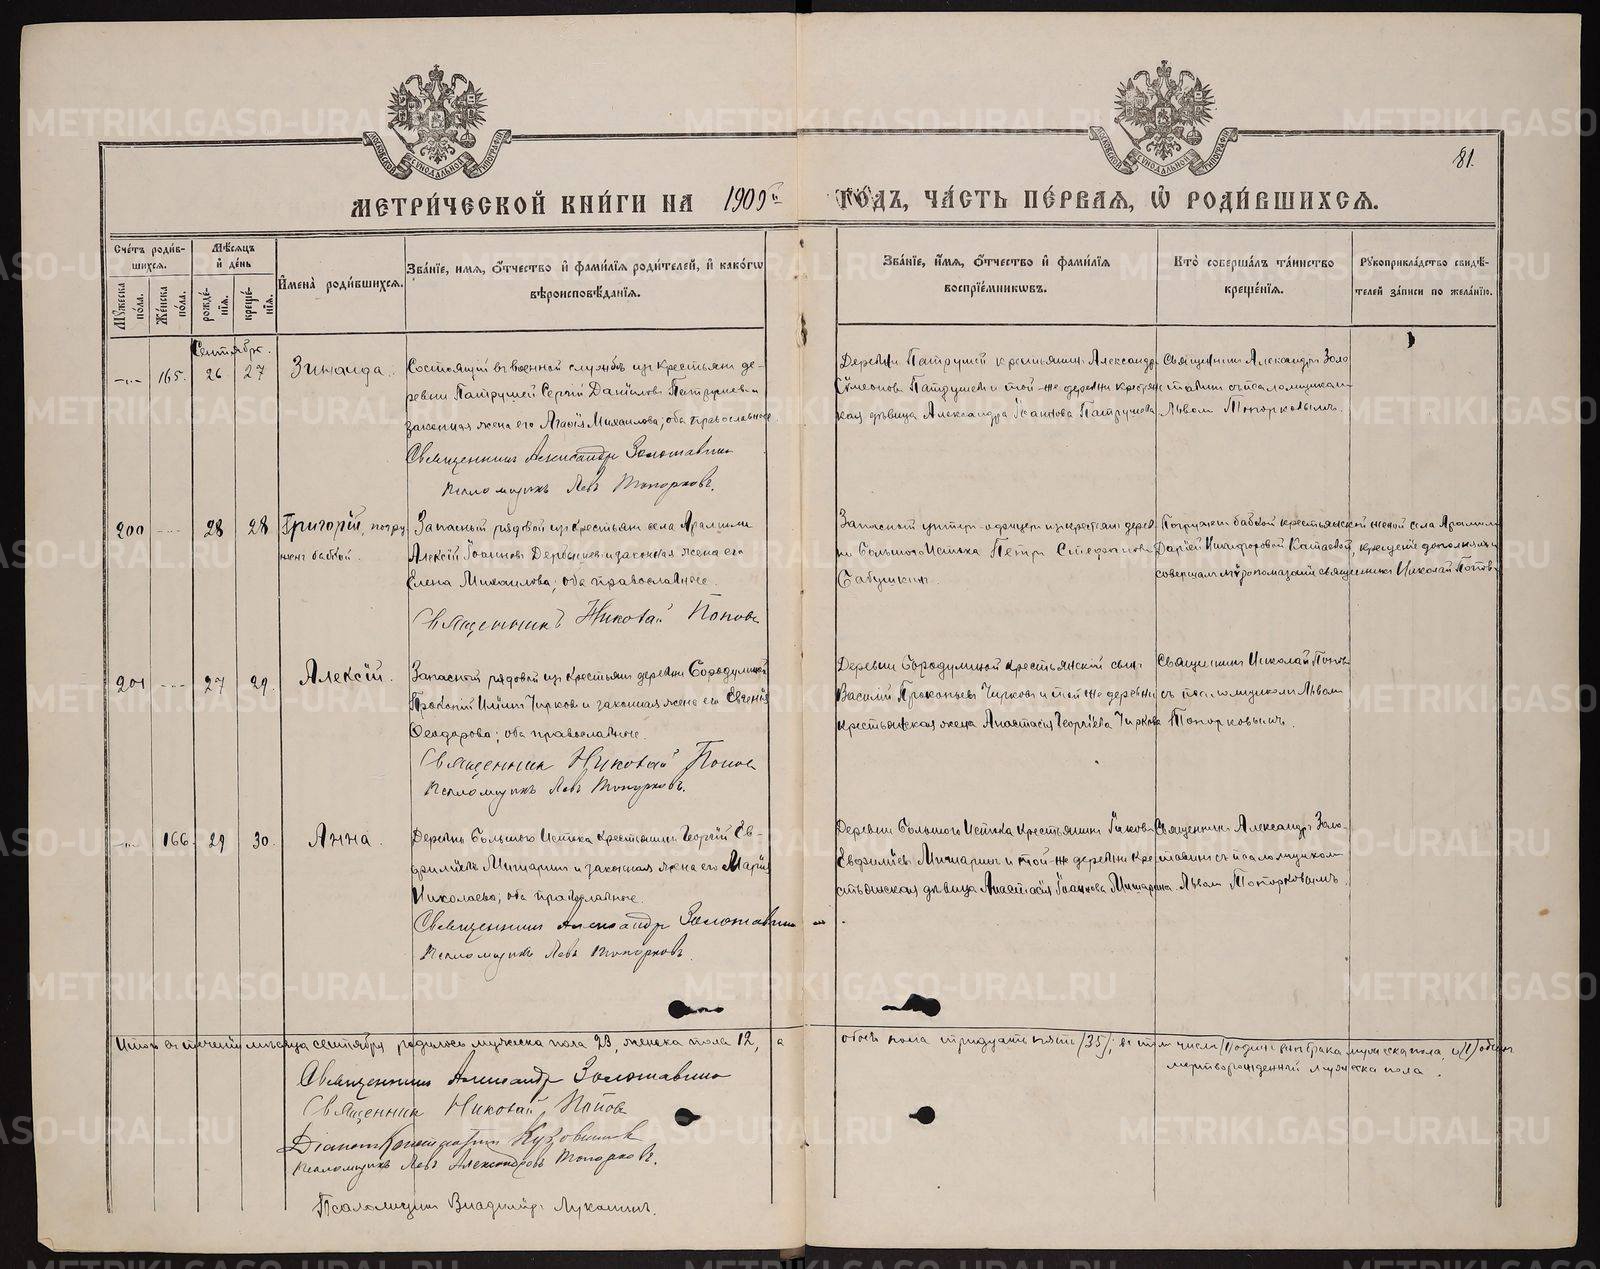 МЕТРИ́ЧЕСКОЙ КНИ́ГИ НА 1909й ГОДЪ, ЧА́СТЬ ПЕ́РВАЯ, Ѡ РОДИ́ВШИХСЯ.
81.
Сче́тъ роди́в-
шихся.
Мѣ́сяцъ
и де́нь
Мꙋ́жеска по́ла.
Же́нска по́ла.
рожде́-
нїя.
креще́-
нїя.
И҆мена̀ роди́вшихся.
Зва́нїе, имя, ѻ҆́тчество и҆ фами́лїя роди́телей, и҆ како́гѡ
вѣроисповѣ́данїя.
Зва́нїе, и҆́мя, ѻ҆́тчество и҆ фами́лїя
воспрїе́мникѡвъ.
Кто̀ соверша́лъ та́инство
креще́нїя.
Рꙋкоприкла́дство свидѣ́-
телей за́писи по жела́нїю.
Сентябрь.
-"- 165. 26 27 Зинаида.
Состоящiй въ военной службѣ изъ крестьянъ де-
ревни Патрушей Сергiй Данiиловъ Патрушевъ и
законная жена его Агаѳiя Михаилова; оба православные.
Священникъ Александръ Золотавинъ
Псаломщикъ Левъ Топорковъ.
Деревни Патрушей крестьянинъ Александръ
Сѵмеоновъ Патрушевъ и той-же деревни крестьян-
ская дѣвица Александра Iоаннова Патрушева.
Священникъ Александръ Золо-
тавинъ съ псаломщикомъ
Львомъ Топорковымъ.
200 --- 28 28 Григорiй, погру-
женъ бабкой.
Запасный рядовой изъ крестьянъ села Арамили
Алексiй Iоанновъ Дербышевъ и законная жена его
Елена Михаилова; оба православные.
Священникъ Николай Поповъ
Запасный унтеръ-офицеръ изъ крестьянъ дерев-
ни Большого Истока Петръ Стефановъ
Бабушкинъ.
Погруженъ бабкой крестьянской женой села Арамили
Дарiей Никифоровой Катаевой, крещенiе дополнялъ и
совершалъ мѵропомазанiе священникъ Николай Поповъ
201 --- 27 29. Алексiй.
Запасной рядовой изъ крестьянъ деревни Бородулиной
Прокопiй Илiинъ Чирковъ и законная жена его Евгенiя
Ѳеодорова; оба православные.
Священникъ Николай Поповъ
Псаломщикъ Левъ Топорковъ.
Деревни Бородулиной крестьянскiй сынъ
Василiй Прокопьевъ Чирковъ и той же деревни
крестьянская жена Анастасiя Георгiева Чиркова
Священникъ Николай Поповъ
съ псаломщикомъ Львомъ
Топорковымъ.
-"- 166. 29 30. Анна.
Деревни Большого Истока крестьянинъ Георгiй Ев-
фимiевъ Мишаринъ и законная жена его Марiя
Николаева; оба православные.
Священникъ Александръ Золотавинъ
Псаломщикъ Левъ Топорковъ.
Деревни Большого Истока крестьянинъ Iаковъ
Евфимiевъ Мишаринъ и той-же деревни кре-
стьянская дѣвица Анастасiя Iоаннова Мишарина.
Священникъ Александръ Золо-
тавинъ съ псаломщикомъ
Львомъ Топорковымъ.
Итого въ теченiи мѣсяца сентября родилось мужеска пола 23, женска пола 12, а обоего пола тридцать пять /35/; въ томъ числѣ /1/ одинъ внѣ брака мужеска пола, и /1/ одинъ
мертворожденный мужеска пола.
Священникъ Александръ Золотавинъ
Священникъ Николай Поповъ
Дiаконъ Константинъ
Псаломщикъ Левъ Александровъ Топорковъ.
Псаломщикъ Владимiръ Луканинъ.
METRIKI.GASO-URAL.RU